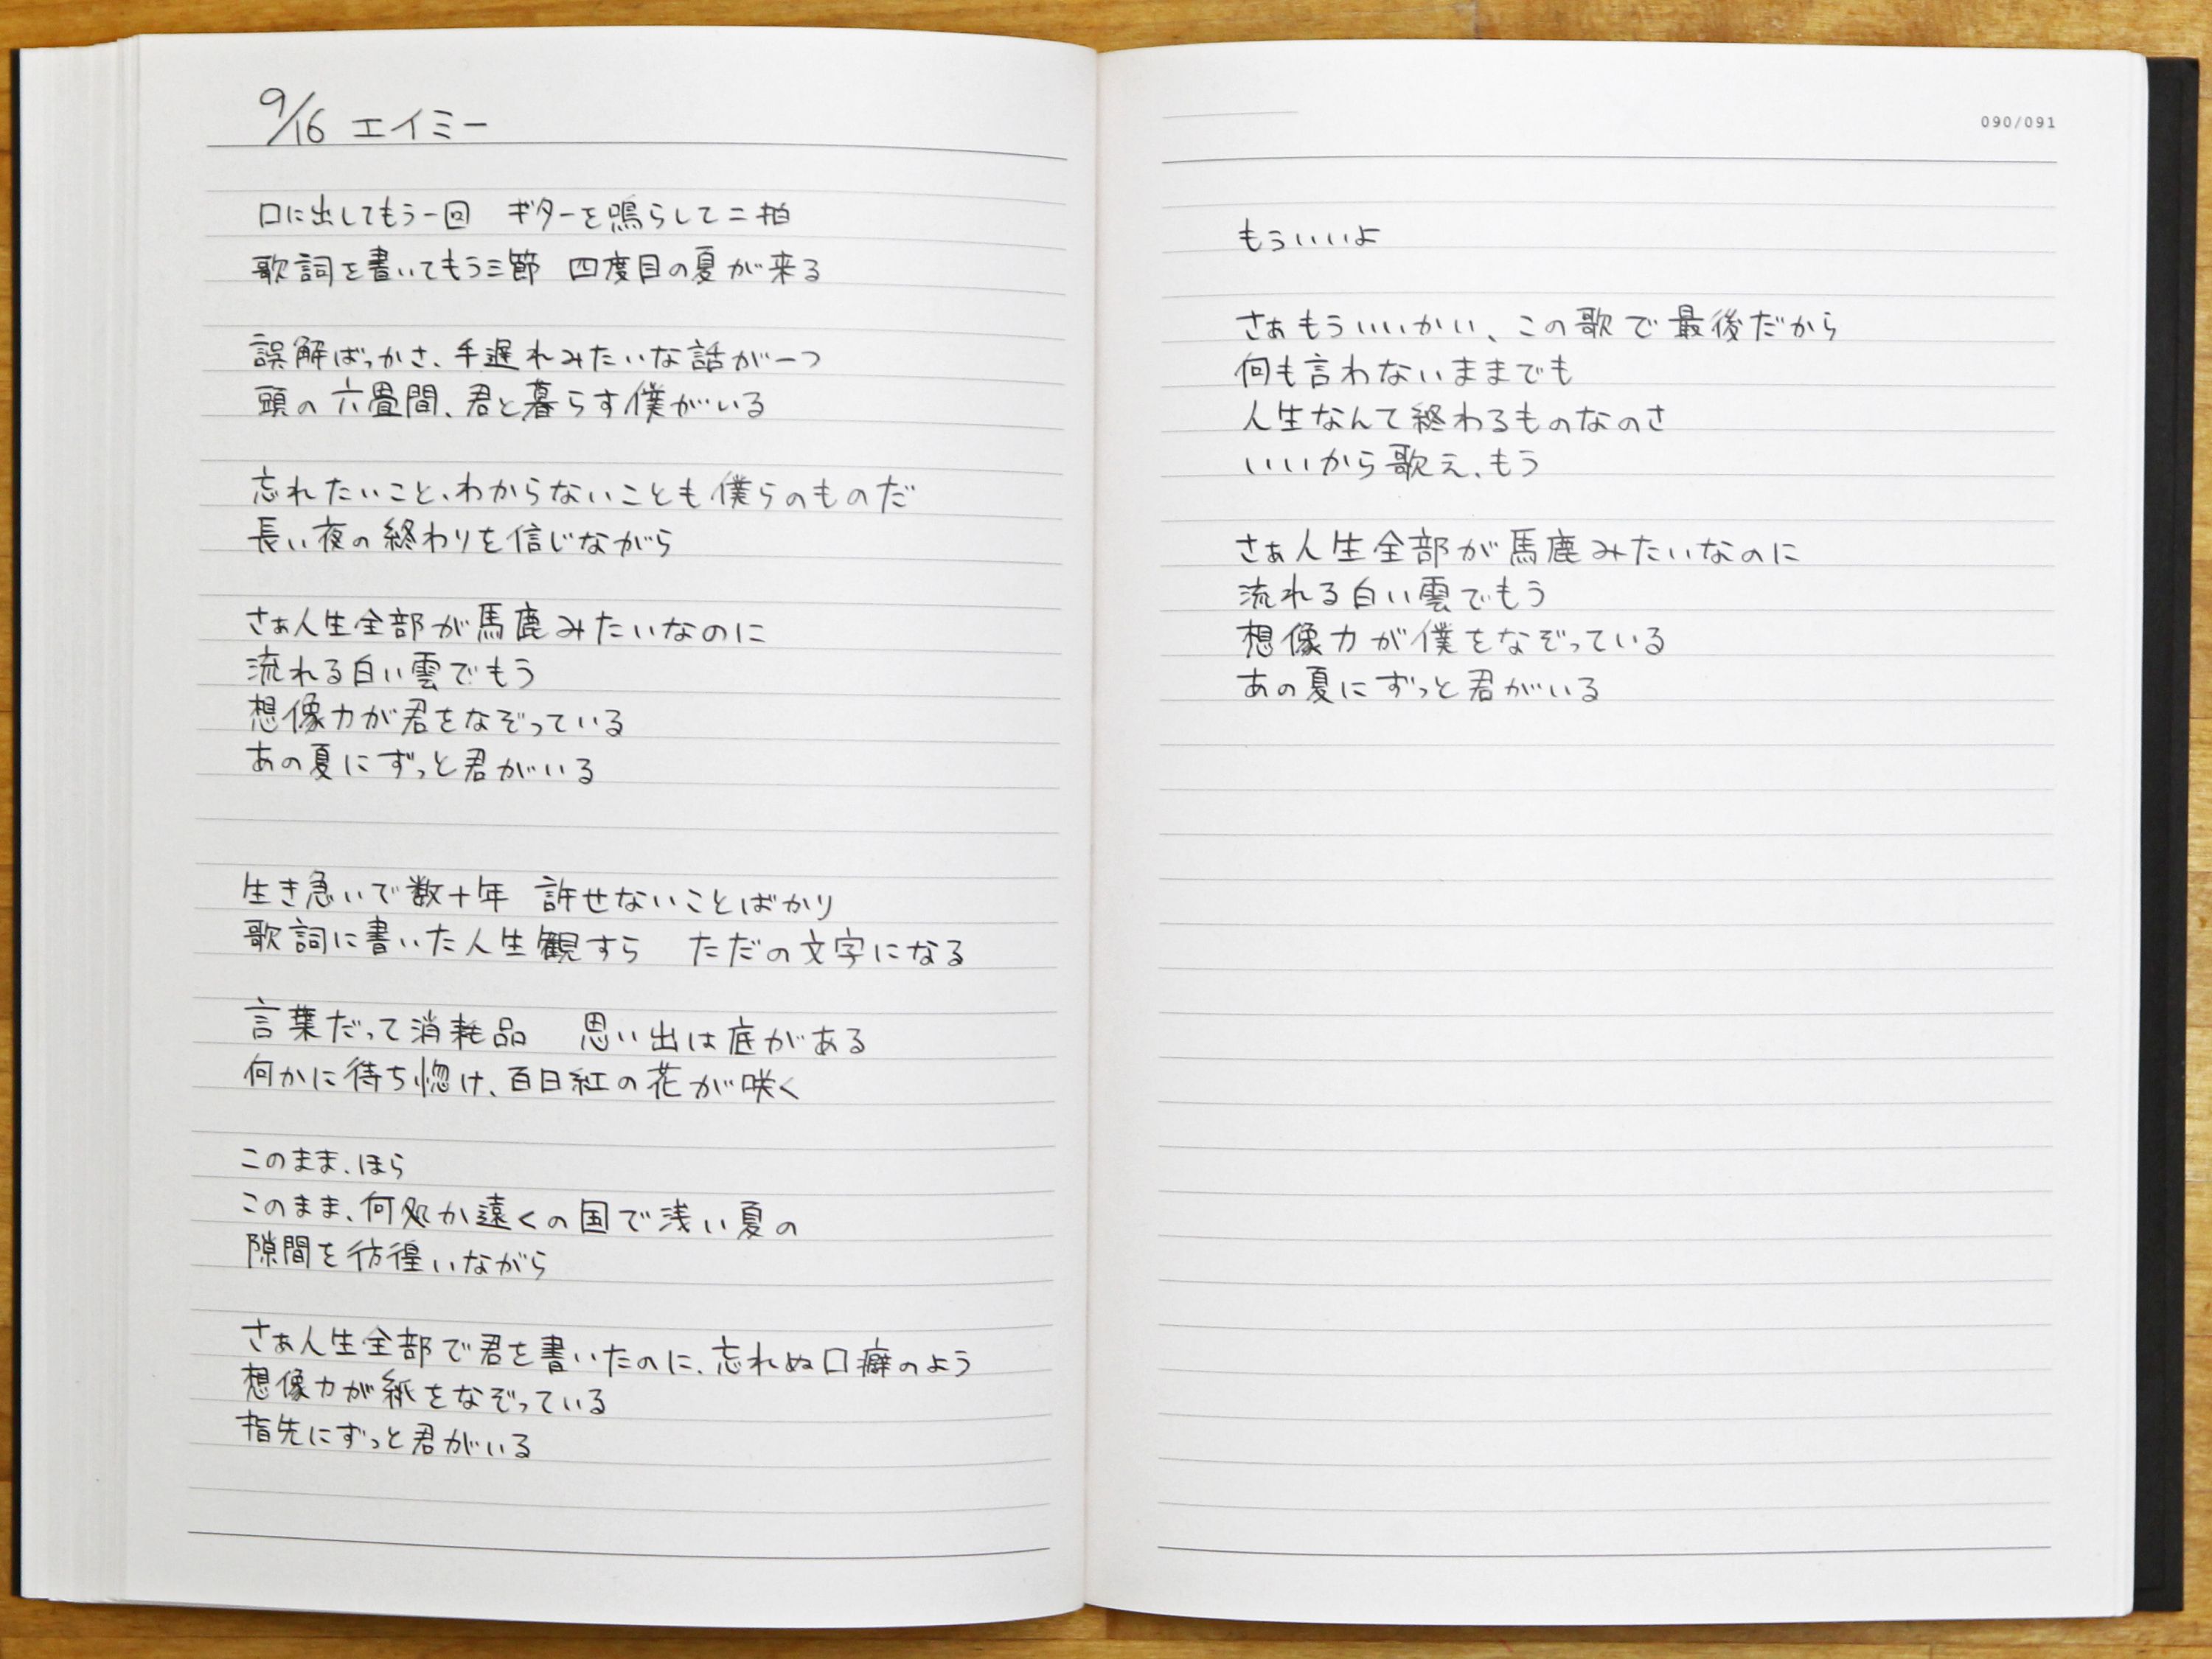 9/16 エイミー
口に出してもう一回　ギターを鳴らして二拍
歌詞を書いてもう三節　四度目の夏が来る
誤解ばっかさ、手遅れみたいな話が一つ
頭の六畳間、君と暮らす僕がいる
忘れたいこと、わからないことも僕らのものだ
長い夜の終わりを信じながら
さぁ人生全部が馬鹿みたいなのに
流れる白い雲でもう
想像力が君をなぞっている
あの夏にずっと君がいる
生き急いで数十年　許せないことばかり
歌詞に書いた人生観すら　ただの文字になる
言葉だって消耗品　思い出は底がある
何かに待ち惚け、百日紅の花が咲く
このまま、ほら
このまま、何処か遠くの国で浅い夏の
隙間を彷徨いながら
さぁ人生全部で君を書いたのに、忘れぬ口癖のよう
想像力が紙をなぞっている
指先にずっと君がいる
090/091
もういいよ
さぁもういいかい、この歌で最後だから
何も言わないままでも
人生なんて終わるものなのさ
いいから歌え、もう
さぁ人生全部が馬鹿みたいなのに
流れる白い雲でもう
想像力が僕をなぞっている
あの夏にずっと君がいる